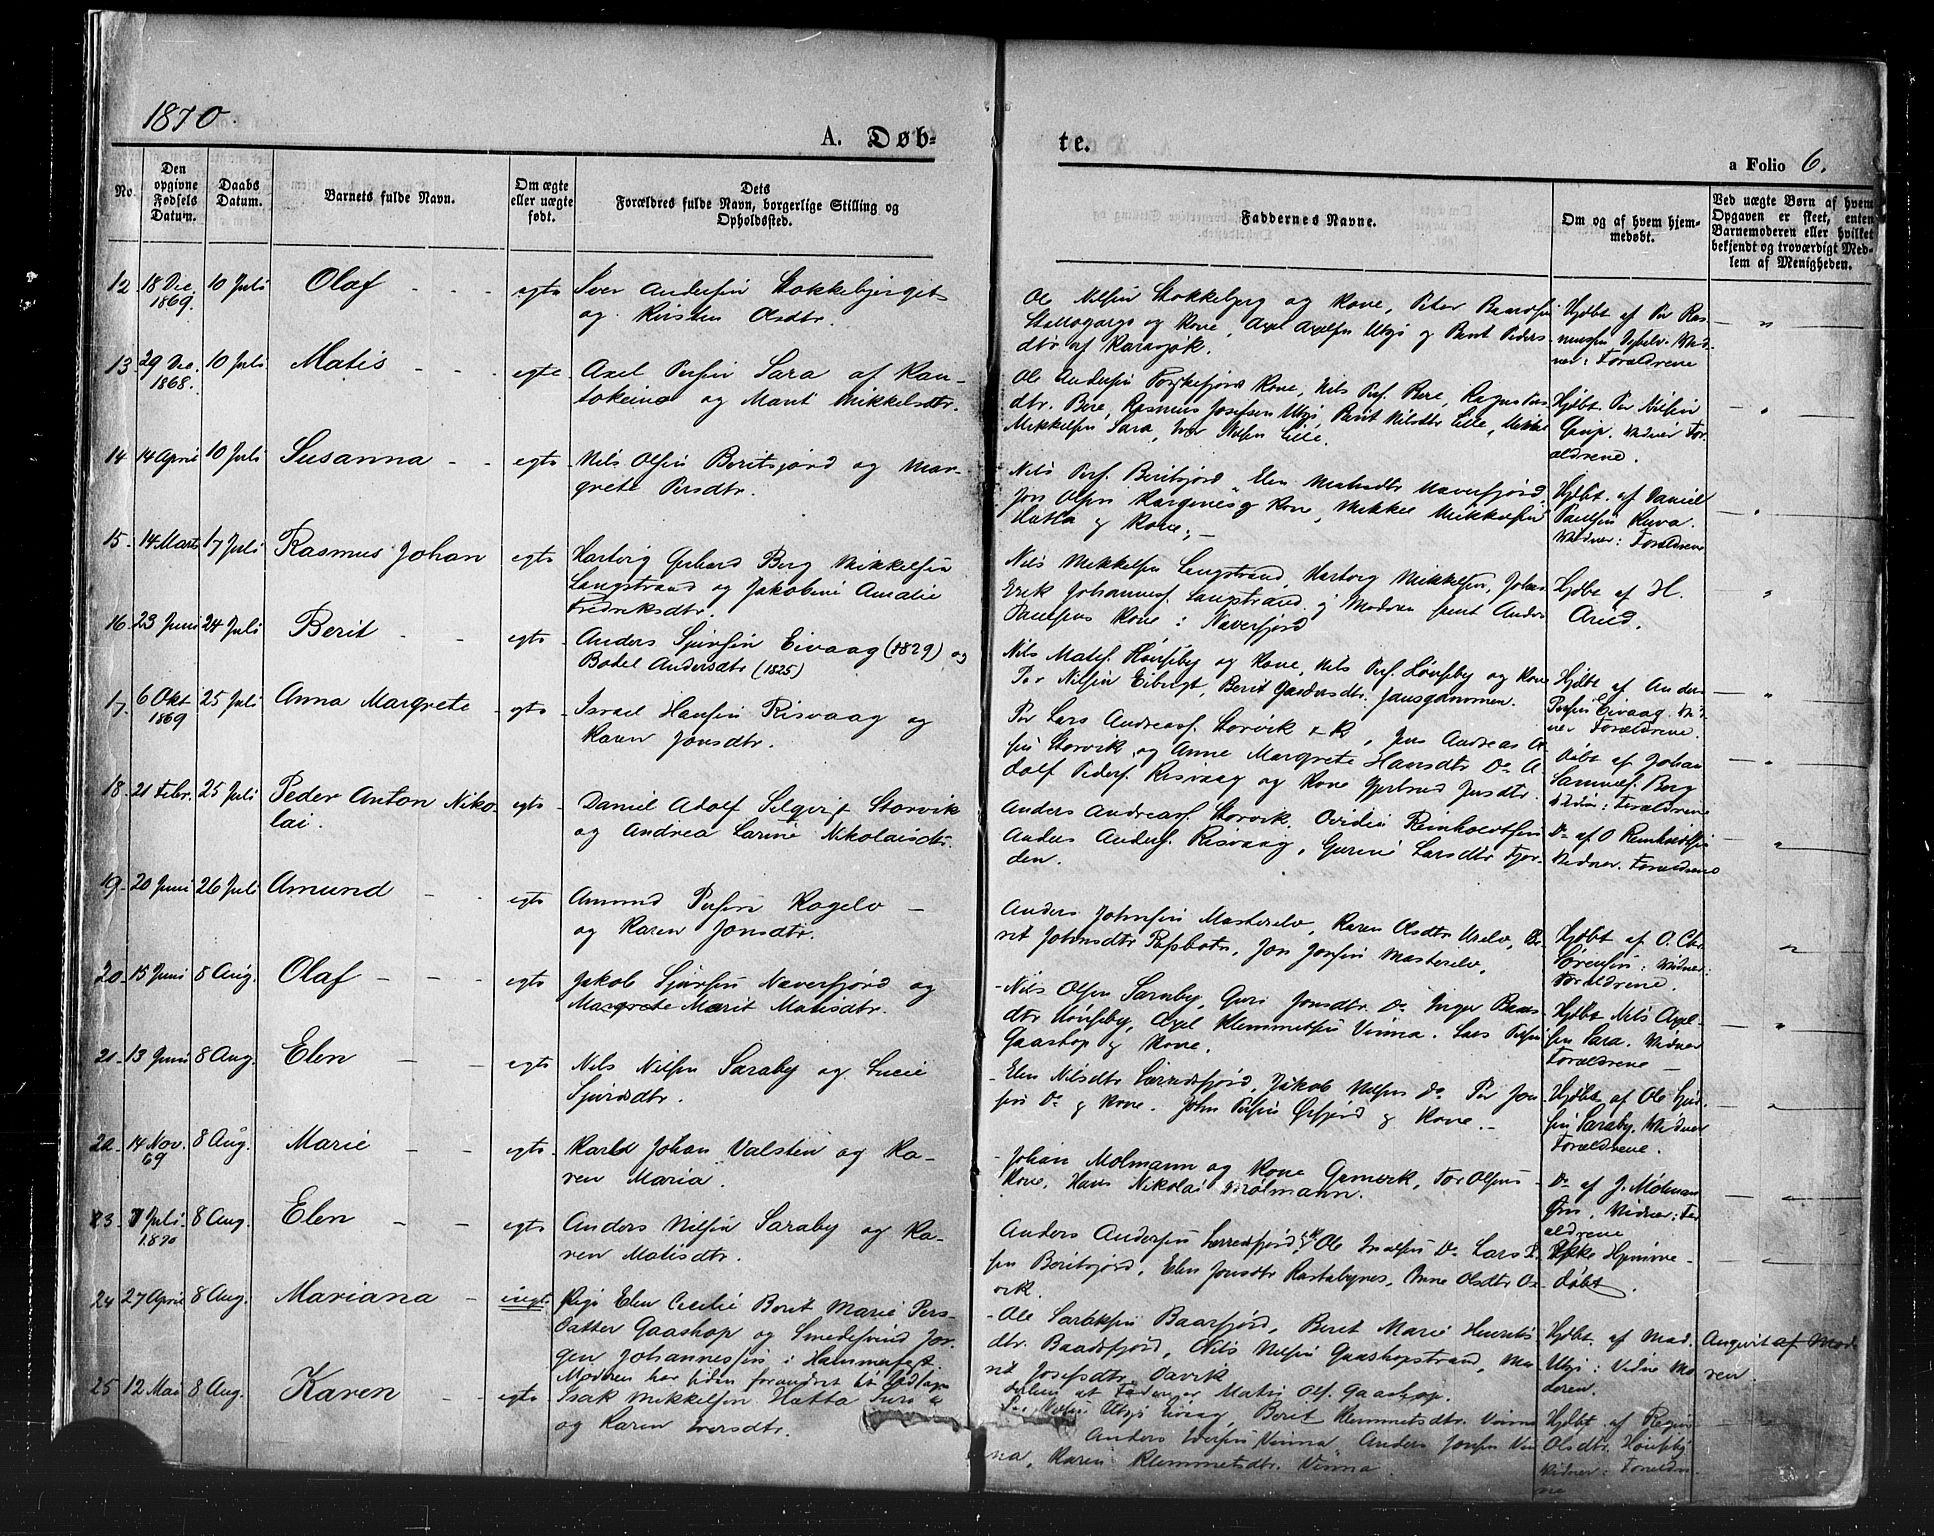 1870.
A. Døb-
te.
a Folio 6.
No.
Den
opgivne
Fødsels
Datum.
Daabs
Datum.
Barnets fulde Navn.
Om ægte
eller uægte
født.
Dets
Forældres fulde Navn, borgerlige Stilling og
Opholdssted.
Faddernes Navne.
Om og af hvem hjem-
medøbt.
Ved uægte Børn af hvem
Opgaven er skeet, enten
Barnemoderen eller hvilket
bekjendt og troværdigt Med-
lem af Menigheden.
12 18 Dec. 1869 10 Juli Olaf egte
Iver Andersen Stokkebjerget
og Kirsten Olsdtr.
Ole Nilsen Stokkebjerg og Kone, Peter
og Kone, Axel Axelsen Utsjo og Berit Peders
dtr af Karasjok.
Hjdbt af Per Ras-
musen
ner: Forældrene
13 29 Dec. 1868. 10 Juli Matis egte
Axel Persen Sara af Kau-
tokeino og Marit Mikkelsdtr.
Ole Andersen Kone, Nils Pers. Bere,
dtr. Bere, Rasmus Josefsen Utsjo, Berit Nilsdtr Lille, Mikkel
Mikkelsen Sara, Iver Nilsen Lille.
Hjdbt. Per Nilsen
Gaup. Vidner For-
ældrene.
14 14 April 10 Juli Susanna egte
Nils Olsen Beritsjord og Mar-
grete Persdtr.
Nils Pers. Beritsjord, Elen Matisdtr Naverfjord,
Jon Olsen Kargenes og Kone, Mikkel Mikkelsen
Hatta og Kone.
Hjdbt. af Daniel
Paulsen Kuva.
Vidner: Forældrene
15 14 Marts 17 Juli Rasmus Johan egte
Hartvig Gerhard Berg Mikkelsen
Langstrand og Jakobine Amalie
Fredriksdtr.
Nils Mikkelsen Langstrand, Hartvig Mikkelsen, Johan
Erik Johannes. Langstrand og Moderen samt Anders
Paulsens Kone i Naverfjord
Hjdbt af H.
Arild.
16 23 Juni 24 Juli Berit egte
Anders Sjursen Eivaag (1829) og
Bodel Andersdtr (1825)
Nils Matis. Hønseby og Kone, Nils Pers. Hønseby og Kone
Per Nilsen Eibugt, Berit
Hjdbt af Anders
Persen Eivaag. Vid-
ner Forældrene.
17 6 Okt 1869 25 Juli Anna Margrete egte
Israel Hansen Risvaag og
Karen Jonsdtr.
Per Lars Andreass. Storvik & K, Jens Andreas
sen Storvik og Anne Margrete Hansdtr Do A
dolf Peders. Risvaag og Kone Gjertrud Jensdtr.
Døbt af Johan
Samuels. Berg
Vidner: Forældrene
18 21 Febr. 25 Juli Peder Anton Niko-
lai. egte
Daniel Adolf Storvik
og Andrea Larine Nikolaisdtr.
Anders Andreass. Storvik. Reinholdtsen
Anders Anders. Risvaag, Gurine Larsdtr Fjor-
den.
Do af O Reinholdtsen
Vidner. Forældrene
19 20 Juni 26 Juli Amund egte
Amund Persen Kogelv
og Karen Jonsdtr.
Anders Johnsen Masterelv, Karen Olsdtr Urelv, Be-
rit Johnsdtr Jon Jonsen Masterelv.
Hjdbt af O. Chr.
Sørensen: Vidner:
Forældrene.
20 15 Juni 8 Aug. Olaf egte
Jakob Sjursen Naverfjord og
Margrete Marit Matisdtr.
Nils Olsen Saraby, Guri Jonsdtr. Do Inger Baars
dtr Hønseby, Axel Klemmetsen Vinna. Lars Persen
Gaashop og Kone.
Hjdbt Nils Axel-
sen Sara. Vidner
Forældrene
21 13 Juni 8 Aug. Elen egte
Nils Nilsen Saraby og Lucie
Sjursdtr.
Elen Nilsdtr Lærredsfjord, Jakob Nilsen Do. Per Jon
sen Do og Kone. John Persen Ørfjord og Kone.
Hjdbt af Ole
sen Saraby. Vidner
Forældrene.
22 14 Nov. 69 8 Aug. Marie egte
Karl Johan Valsten og Ka-
ren Maria.
Johan Molmann og Kone Tor Olsens
Kone, Hans Nikolai Molmann.
Do af J. Molman
Vidner: For
ældrene
23 7 Juli 1870 8 Aug. Elen egte
Anders Nilsen Saraby og Ka-
ren Matisdtr.
Anders Andersen Lærredsfjord & K Ole Do Lars
sen Beritsjord, Elen Jonsdtr Rastabynes, Anne Olsdtr
vik.
Ikke Hjemme-
døbt
24 27 April 8 Aug. Mariana uegte
Pige Elen Cecilie Berit Marie Pers-
datter Gaashop og Smedesvend Jør
gen Johannessen i Hammerfest.
Moderen har siden forandret
Ole Baarfjord, Beret Marie Henriks
dtr. Baadsfjord, Nils Nilsen Gaashopstrand, Ma
rit Josefsdtr. Davik
at Matis Ols. Gaashop.
Hjdbt af Mad.
Utsi: Vidne Mo
deren.
Angivet af Mod
ren.
25 12 Mai 8 Aug. Karen egte
Isak Mikkelsen Hatta
og Karen Iversdtr.
Per Nilsen Utsjo Eivag, Berit Klemmetsdtr. Vinna
Anders Iversen Vinna, Anders Jonsen Vin
na, Karen Klemmetsdtr. Vinna.
Hjdbt af
Olsdtr. Hønseby
Vidner: Forældre-
ne